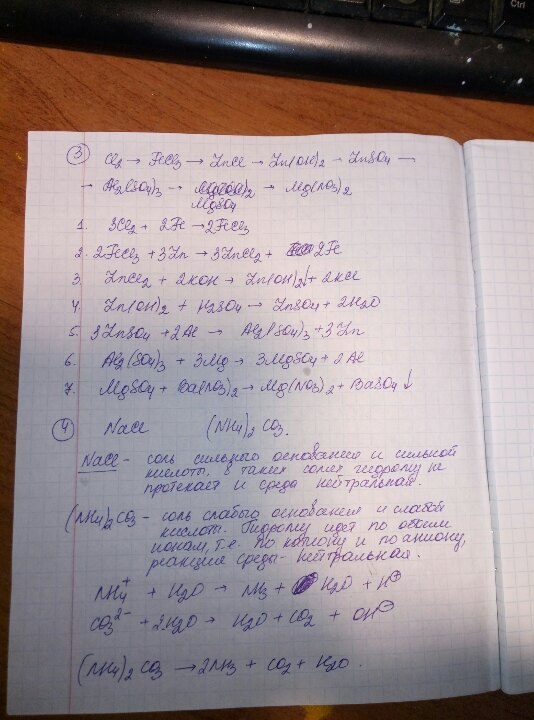 Ctrl
③ Cl₂ → FeCl₃ → ZnCl → Zn(OH)₂ → ZnSO₄ →
→ Al₂(SO₄)₃ → → Mg(NO₃)₂
MgSO₄
1. 3Cl₂ + 2Fe → 2FeCl₃
2. 2FeCl₃ + 3Zn → 3ZnCl₂ + 2Fe
3. ZnCl₂ + 2KOH → Zn(OH)₂↓ + 2KCl
4. Zn(OH)₂ + H₂SO₄ → ZnSO₄ + 2H₂O
5. 3ZnSO₄ + 2Al → Al₂(SO₄)₃ + 3Zn
6. Al₂(SO₄)₃ + 3Mg → 3MgSO₄ + 2Al
7. MgSO₄ + Ba(NO₃)₂ → Mg(NO₃)₂ + BaSO₄↓
④ NaCl (NH₄)₂CO₃.
NaCl – соль сильного основания и сильной
кислоты. В таких солях гидролиз не
протекает и среда нейтральная.
(NH₄)₂CO₃ – соль слабого основания и слабой
кислоты. Гидролиз идет по обоим
ионам, т.е. по катиону и по аниону,
реакция среды – нейтральная.
NH₄⁺ + H₂O → NH₃ + H₂O + H⁺
CO₃²⁻ + 2H₂O → H₂O + CO₂ + OH⁻
(NH₄)₂CO₃ → 2NH₃ + CO₂ + H₂O.